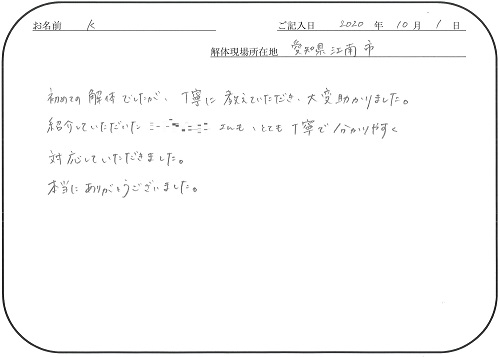 お名前 K ご記入日 2020 年 10 月 1 日
解体現場所在地 愛知県江南市
初めての解体でしたが、丁寧に教えていただき、大変助かりました。
紹介していただいた さんも、とても丁寧で分かりやすく
対応していただきました。
本当にありがとうございました。